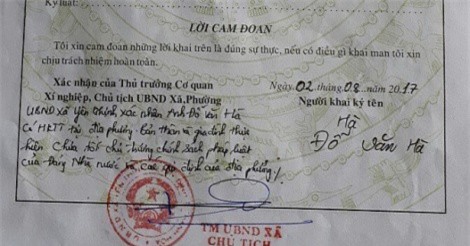 Kỷ luật:
LỜI CAM ĐOAN
Tôi xin cam đoan những lời khai trên là đúng sự thực, nếu có điều gì khai man tôi xin
chịu trách nhiệm hoàn toàn.
Xác nhận của Thủ trưởng Cơ quan
Xí nghiệp, Chủ tịch UBND Xã, Phường
Ngày 02 tháng 08 .20 17
Người khai ký tên
UBND xã Yên Thịnh xác nhận Anh Đỗ Văn Hà
Có HKTT tại địa phương. Bản thân và gia đình thực
hiện Chưa tốt chủ trương chính sách pháp luật
của Đảng Nhà nước và các quy định của địa phương./.
Hà
Đỗ Văn Hà
TM UBND XÃ
CHỦ TỊCH